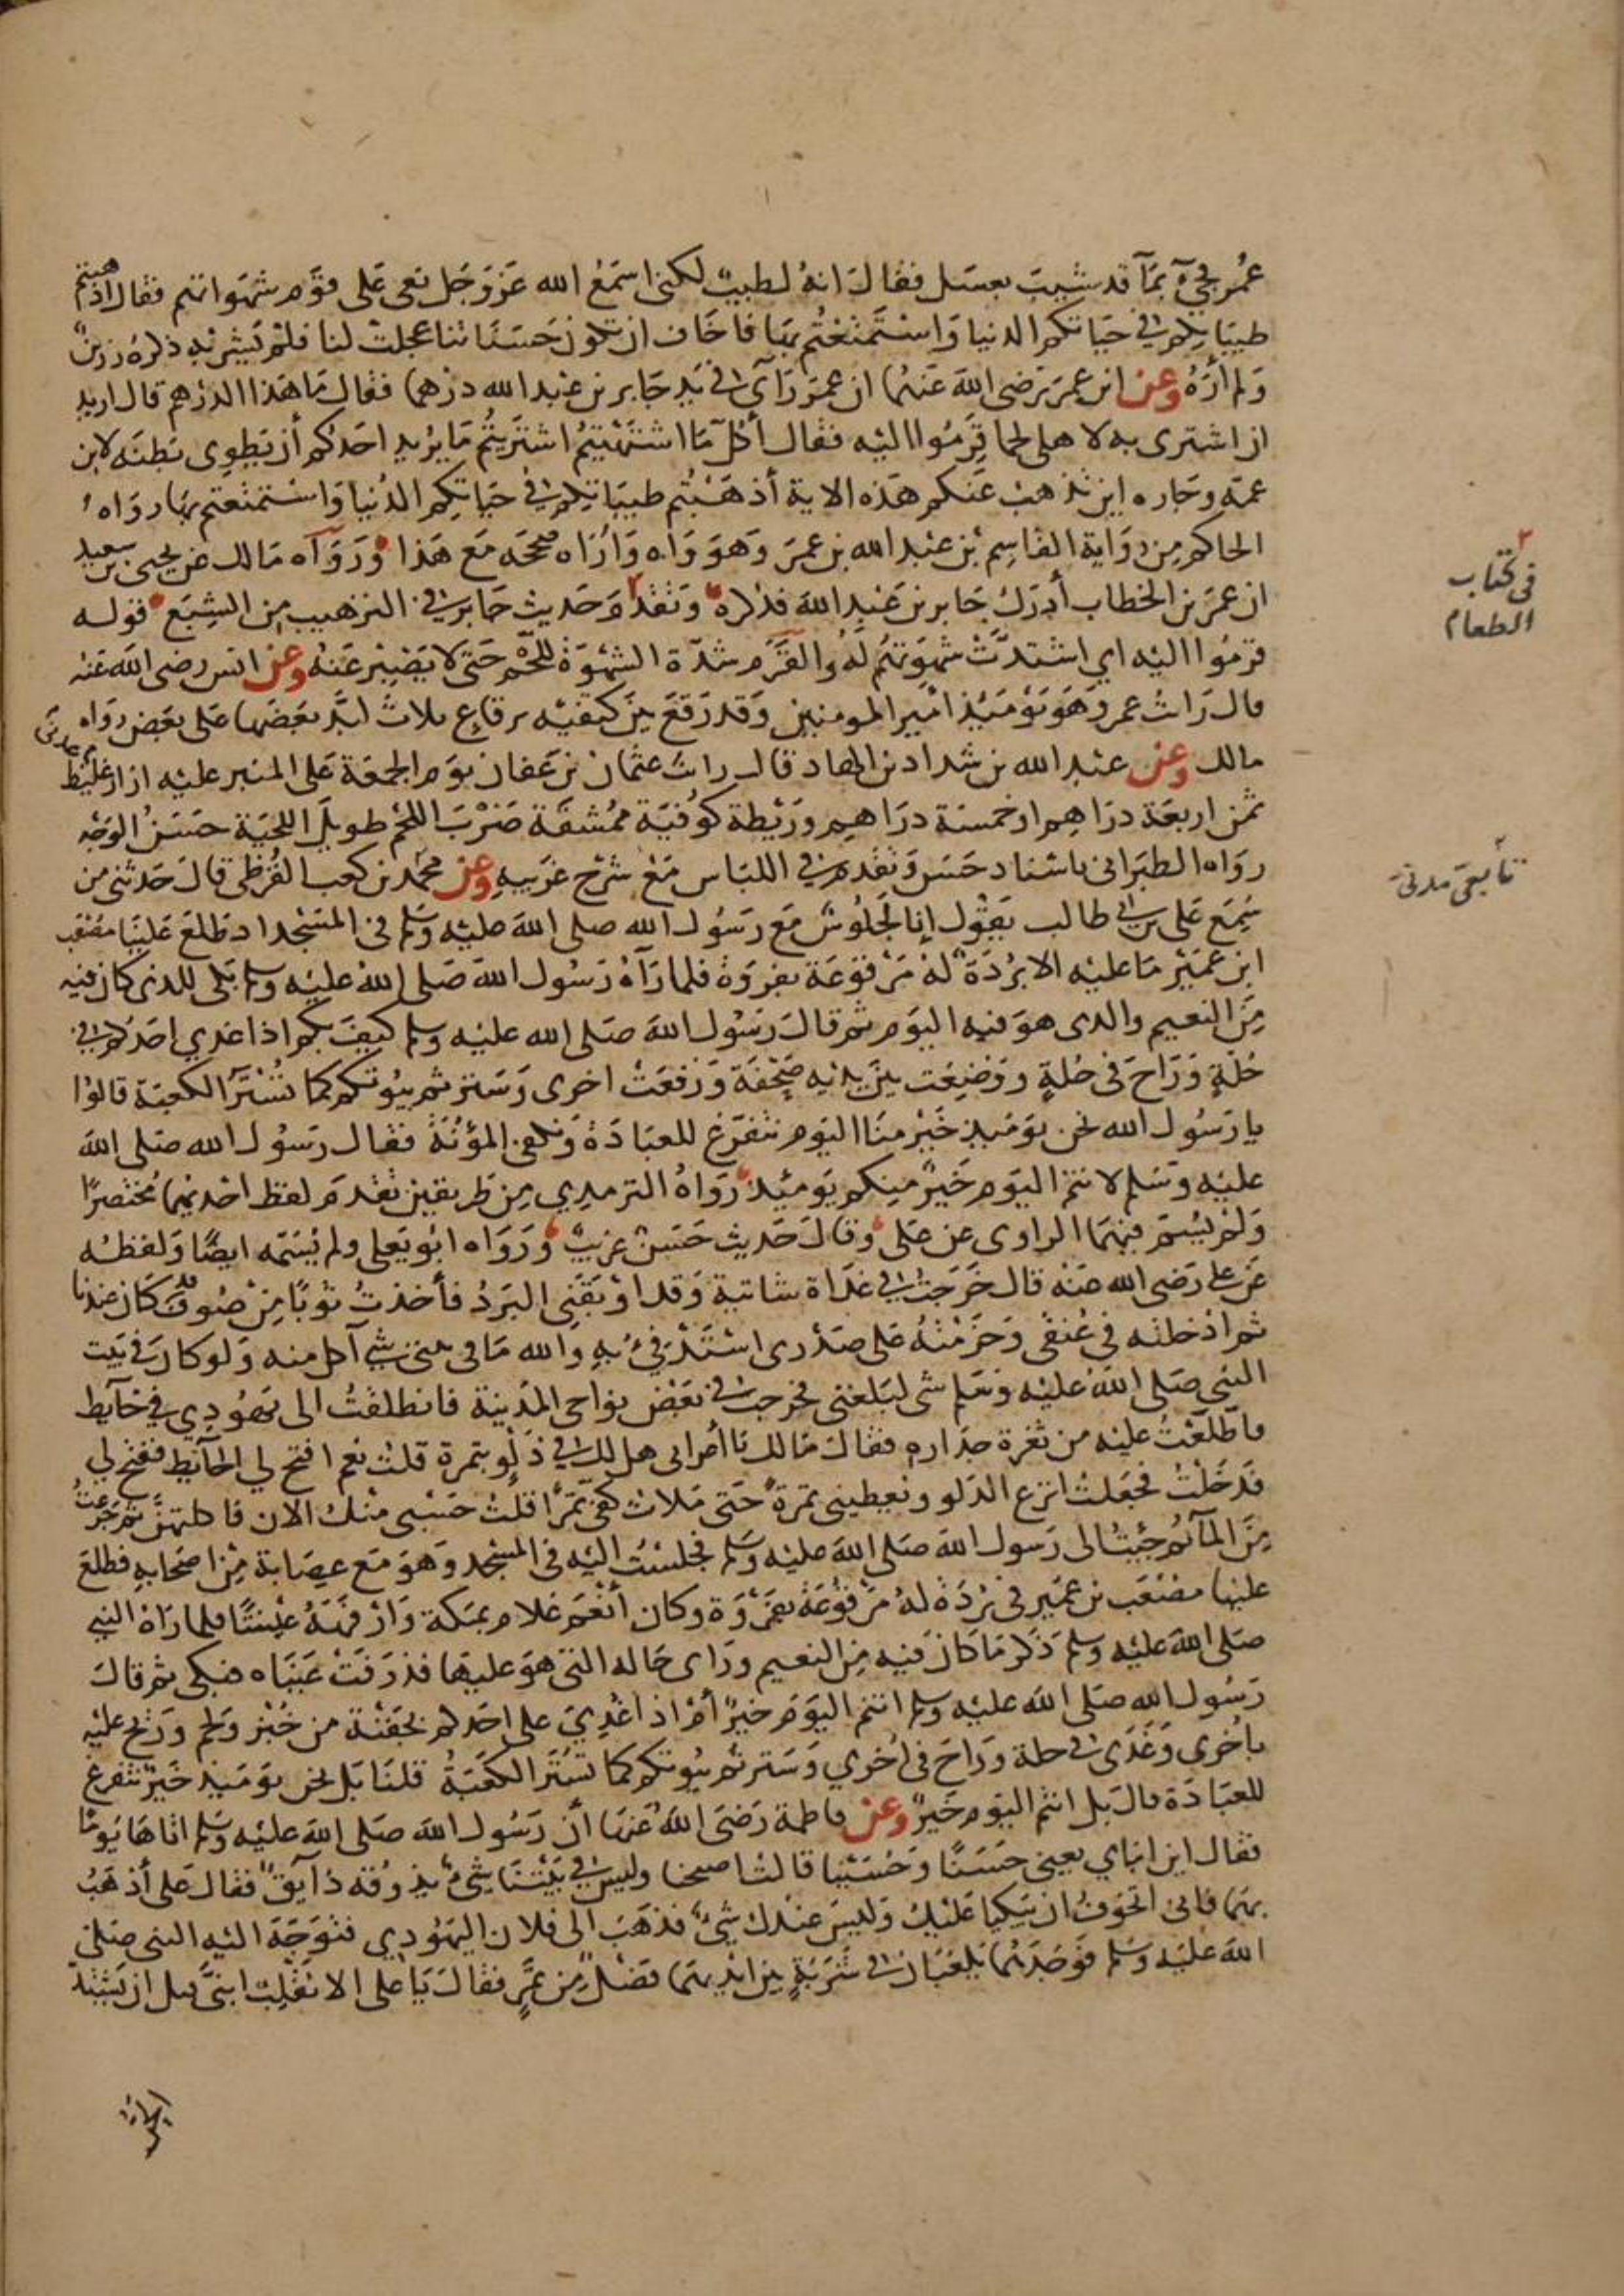 عُمر فجيءَ بمآءٍ قد شيبَ بعسَل فقال انهُ لطيبٌ لكنى اسمَعُ الله عَزوَجَل نعى عَلى قوم شهواتهم فقال اذهبتم
طيبَاتِكم فى حيَاتكم الدنيا وَاستَمتعتُم بهَا فاخَاف ان تكون حَسَنَاتنا عجلت لنا فلم يَشربْهِ ذكرهُ رزينٌ
وَلم أرَهُ وعن ابن عمرَ رَضى اللهَ عَنهُما ان عمرَ رَآى فى يَدِ جَابر بن عبد الله درهما فقال مَا هَذا الدرهم قال اريد
ان اشترى به لاهلى لحما قرِمُوا اليْه فقال أكُلّ مَا اشتهَيتُم اشتَريتُم مَا يرُيد احَدُكم أن يَطوِى بَطنَه لابن
عمهِ وجَاره اين تذهبُ عَنكم هَذه الاية أذهَبْتُم طيبَاتِكم فى حيَاتِكم الدُنيا وَاستمتعتم بهَا رَوَاهُ
الحاكم مِن رِوَاية القاسِم بْن عبْد الله بن عمرَ وَهوَ وَاهٍ وَارَاه صححَه مَع هَذا وَرَوَآه مَالك عَن يحيى بن سعيد
ان عمرَ بن الخطاب أدرَك جَابر بن عَبْدِ اللهَ فذكره وَتقدَّمَ حَديث جَابر فى الترهيب مِن الشِبَع قوله
قرمُوا اليْه اي اشتدَّتْ شهوَتهُم لَهُ والقَرَم شدّة الشهْوَة لِلَّحم حَتى لا يَصْبِر عَنهُ وعن انس رضى اللهَ عَنه
قال رَايتُ عمر وَهوَ يَوْمَئِذٍ امْير المومنين وَقد رَقعَ بَيْن كتفيْه برقاعٍ ثلاث لبَّدَ بَعَضَها عَلى بعَض رَوَاه
مالك وعن عبْد الله بن شداد بن الهاد قال رايت عثمان بن عَفان يوم الجمعَة عَلى المنبر عليْه ازار عدنى غليظ
ثمن اربعَة درَاهِم او خمسَة درَاهِم وَرَيْطة كوُفيَة ممُشقَّة ضَرْبَ اللحْم طويلَ اللحْيَة حسَنُ الوَجْه
روَاه الطبرَانى باسْناد حَسَن وَتقدم فى اللبَاس مَعْ شرْح غرَيبهِ وعن محمْد بن كعب القُرَظى قال حَدثنى من
سَمِعَ عَلى بن ابى طالب يَقوُل إنا لَجُلوُسٌ مَع رَسُول الله صلى اللهَ عليْه وَسَلم فى المسَجْد اذ طلعَ عَليْنا مصْعَب
ابن عمَيْر مَا عليْه الا برُدَةٌ لهُ مَرْقوعَة بفروَة فلما رَآهُ رَسُول اللهَ صَلى اللهُ عليْه وسلم بَكى للذى كان فيه
مِنَ النعيم والذى هوَ فيه اليوَم ثم قال رَسُول اللهَ صَلى الله عليْه وسلم كيفَ بكم اذا غدي احَدكم فى
حُلةٍ وَرَاحَ فى حُلةٍ وَوَضِعَت بَيْن يدَيْه صَحْفَة وَرُفعَتْ اخرى وَسَترتم بيُوتكم كما تُسْترُ الكعبَة قالوُا
يا رَسُول الله نحن يوَمَئِذٍ خَيْر منَا اليوَم نتفَرَّغ للعبَادَة وَنكفى المؤُنَةُ فقال رسَوُل الله صَلى اللهَ
عليْه وَسَلم لانتمُ اليوَم خَيرٌ مِنكم يوَمئِذٍ رَوَاهُ الترمدِي مِن طريقين تقدم لفظ احَدهما مُختصرًا
وَلم يُسَم فيهمَا الراوى عَن عَلى وَقال حَديث حَسَن غريبٌ وَرَوَاه ابُو يَعلى ولم يُسَمّه ايضًا وَلفظُه
عَن على رَضى الله عَنْه قال خَرَجتُ فى غدَاة شاتية وَقد اوْبقنى البَرَدُ فأخذتُ ثوبًا مِنْ صُوفٍ قد كَان عندنا
ثم ادْخلته فى عُنقى وَحَزَمْتهُ عَلى صَدْرى اسْتَدفىُ بهِ وَالله مَا فى بيتى شى آكل منه وَلو كان فى بَيت
النبى صَلى اللهَ عليْه وسَلم شى لبَلغنى فخرَجت فى بَعْض نواحى المَدينة فانطلقتُ الى يهَوُدِي فى حَآيط
فاطَّلعَتُ عليْه من ثغرة جدَاره فقال مَالك يَا أعْرابى هل لك فى دَلْوٍ بتمرة قلتُ نعم افتح لي الحآئِط ففتح لي
فدَخَلْتُ فجَعلتُ انزع الدَلو ويعطينى تمرة حَتى مَلاتُ كفى تمرًا قلتُ حَسبى منْك الان فاكلتهن ثم جَرَعتُ
مِنَ المآءِ ثم جئتُ الى رَسول اللهَ صَلى اللهَ عليْه وَسَلم فجَلسْتُ اليْه فى المسْجد وَهوَ مَع عِصَابة مِنْ اصحَابهِ فطلعَ
عليْنا مصْعَب بن عمَير فى بُرْدَة لهُ مَرْقُوعَة بفَرْوَة وَكان أنْعَم غلام بمَكة وَارْفهَهُ عيْشًا فلما رَآهُ النبي
صَلى اللهَ عليْه وسلم ذَكر مَا كان فيه مِنَ النعيم ورَاى حَاله التى هوَ عليها فذرَفتْ عيْنَاه فبكى ثم قال
رَسُول الله صَلى اللهَ عليْه وسلم انتم اليوَمَ خيرٌ أمْ اذا غُدِيَ على احَدكم بجَفنَة من خُبْز وَلحم وَرَيح عليْه
بأخرى وَغَدَى فى حلة ورَاحَ فى اُخري وَسَترتم بيُوتكم كما تسُتَر الكعَبَةُ قلنَا بَل نحن يوَمَئذٍ خيَر نتفرغ
للعبَادَة قال بَل انتم اليوَم خيَرٌ وعن فاطمة رَضىَ اللهُ عَنهَا أنّ رَسُول الله صَلى اللهَ عليْه وَسَلم اتاهَا يَوْمًا
فقال اين ابناي يعنى حَسَنًا وَحُسَيْنا قالت اصبحنا وليس فى بيَتنَا شىءٌ يذوقه ذآيقٌ فقال عَلى أذهَبُ
بهمَا فانى اتخوفُ ان يَبكيا عَليْك وَليسَ عنْدك شىءٌ فذهَبَ الى فلان اليَهُودي فتوَجَهَ اليْه النبى صَلى
اللهَ عليْه وَسَلم فوَجَدَهُما يَلعَبَان فى شَرَبَةٍ بين ايْديهمَا فضَلٌ مِن تمْرٍ فقال يَا على الا تقْلِبُ ابنيَّ قبل ان يَشْتدَّ
الحر
٢
فى كتاب
الطعام
تابعىّ مدنىّ